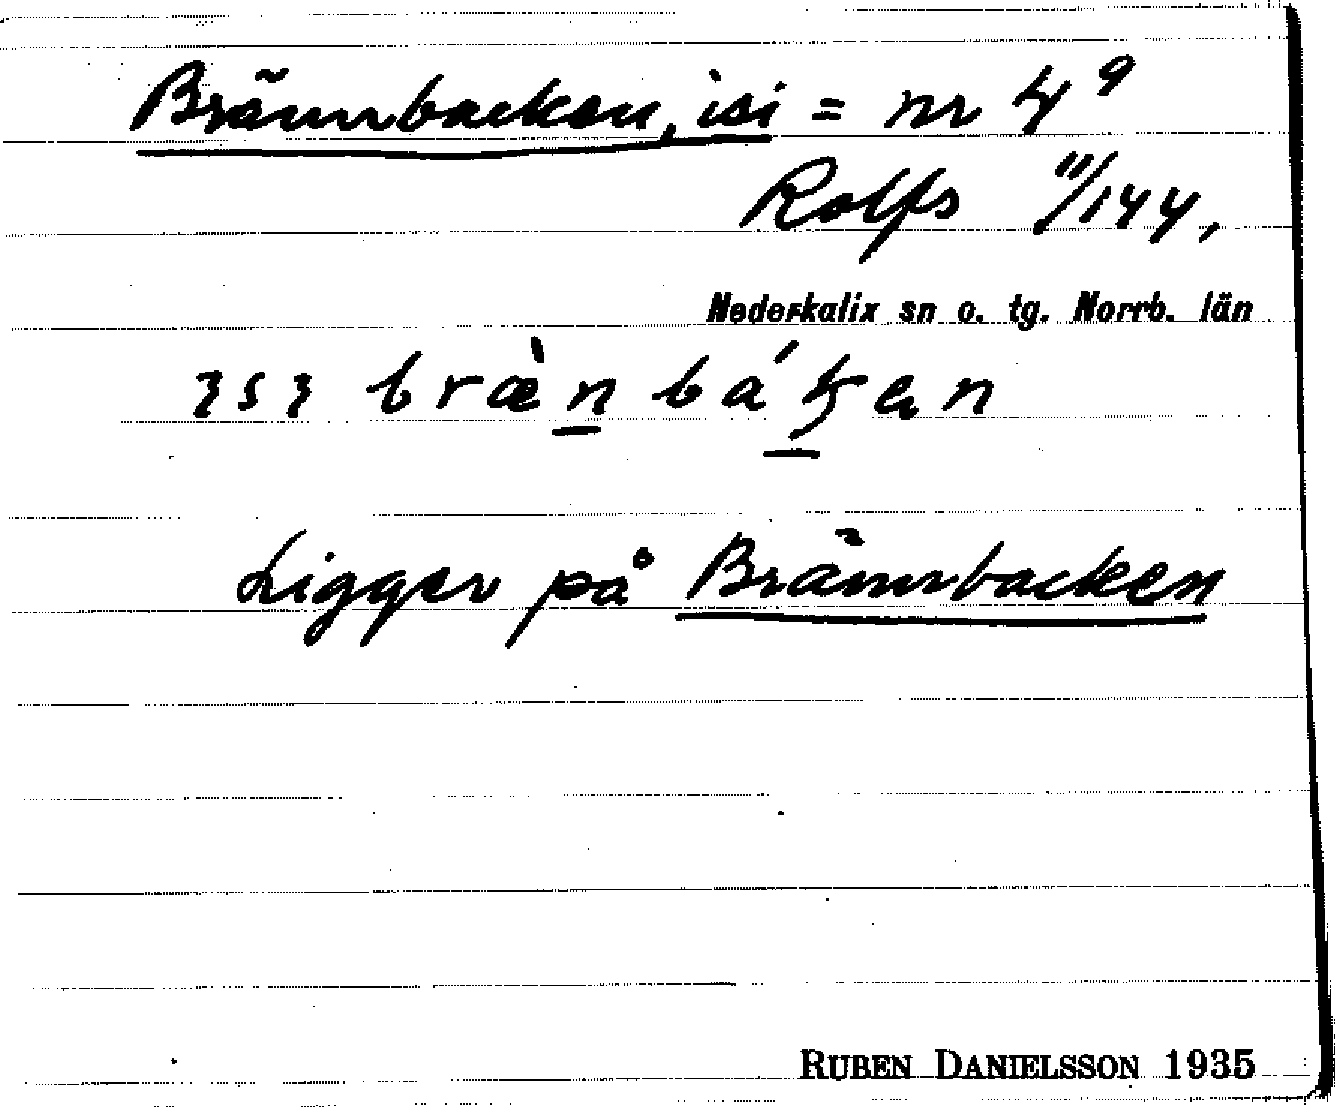 Brännbacken, isi = nr 4⁹
Rolfs 11/144,
Nederkalix sn o. tg. Norrb. län
ɪsɪ bræ̀n bák̡en
Ligger på Brännbacken
RUBEN DANIELSSON 1935